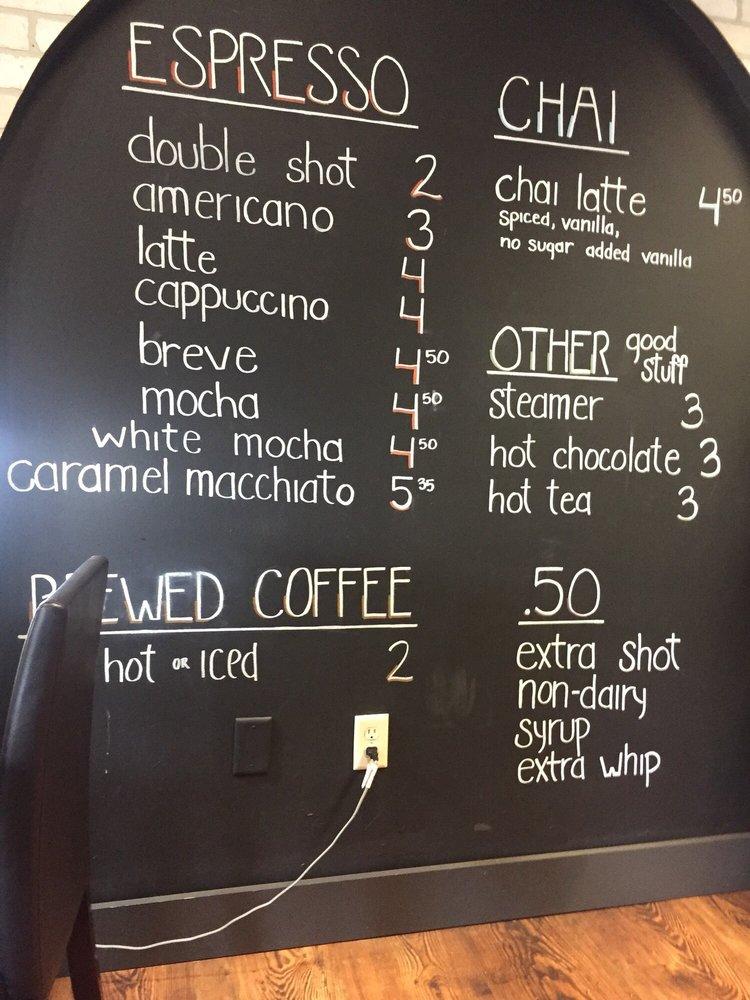 ESPRESSO
double shot 2
americano 3
latte 4
cappuccino 4
breve 4 50
mocha 4 50
white mocha 4 50
caramel macchiato 5 35
BREWED COFFEE
hot OR ICed 2
CHAI
chai latte 4 50
spiced, vanilla,
no sugar added vanilla
OTHER good stuff
steamer 3
hot chocolate 3
hot tea 3
.50
extra shot
non-dairy
syrup
extra whip